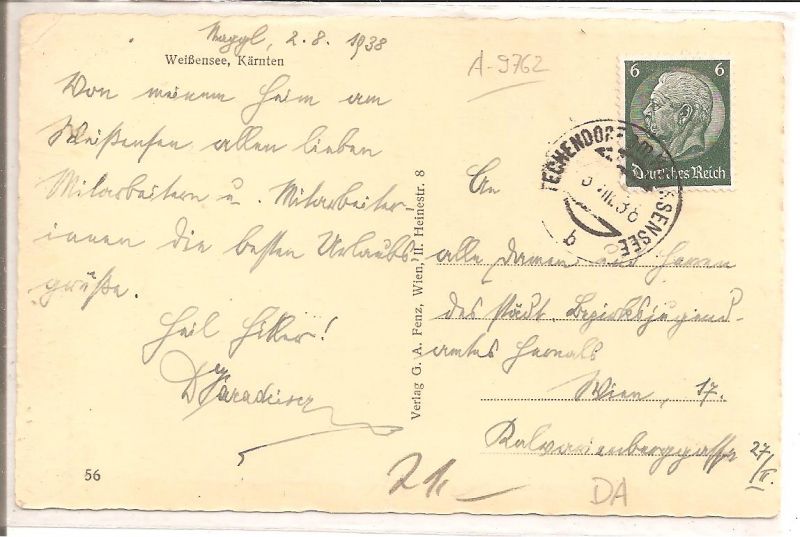 Naggl, 2.8.1938
Weißensee, Kärnten
A-9762
Von meinem Heim am
Weißensee allen lieben
Mitarbeitern u. Mitarbeiter-
innen die besten Urlaubs-
grüße.
Heil Hitler!
56
Verlag G. A. Fenz, Wien, II. Heinestr. 8
6 6
Deutsches Reich
TECHENDORF
WEISSENSEE
VIII.38
b
An
alle Damen und Herren
des städt. Bezirksjugend-
amtes Hernals
Wien, 17.
Kalvarienberggasse
27/II.
DA